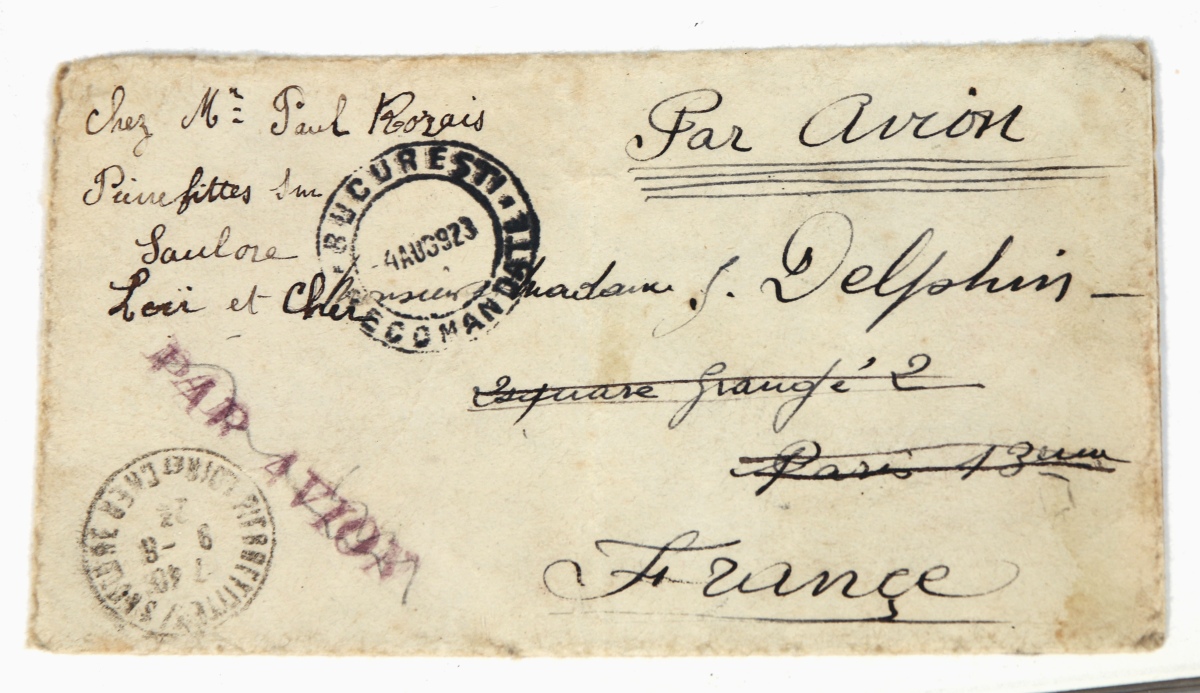 Par Avion
Chez Mr Paul Rozais
Pierrefittes sur
Sauldre
Loir et Cher
BUCURESTI
4 AUG 923
RECOMANDATE
Monsieur Madame S. Delphin
Square Grangé 2
Paris 13eme
France
PAR AVION
PIERREFITTE S/ SAULDRE LOIR ET CHER
7 40
9 - 8
23